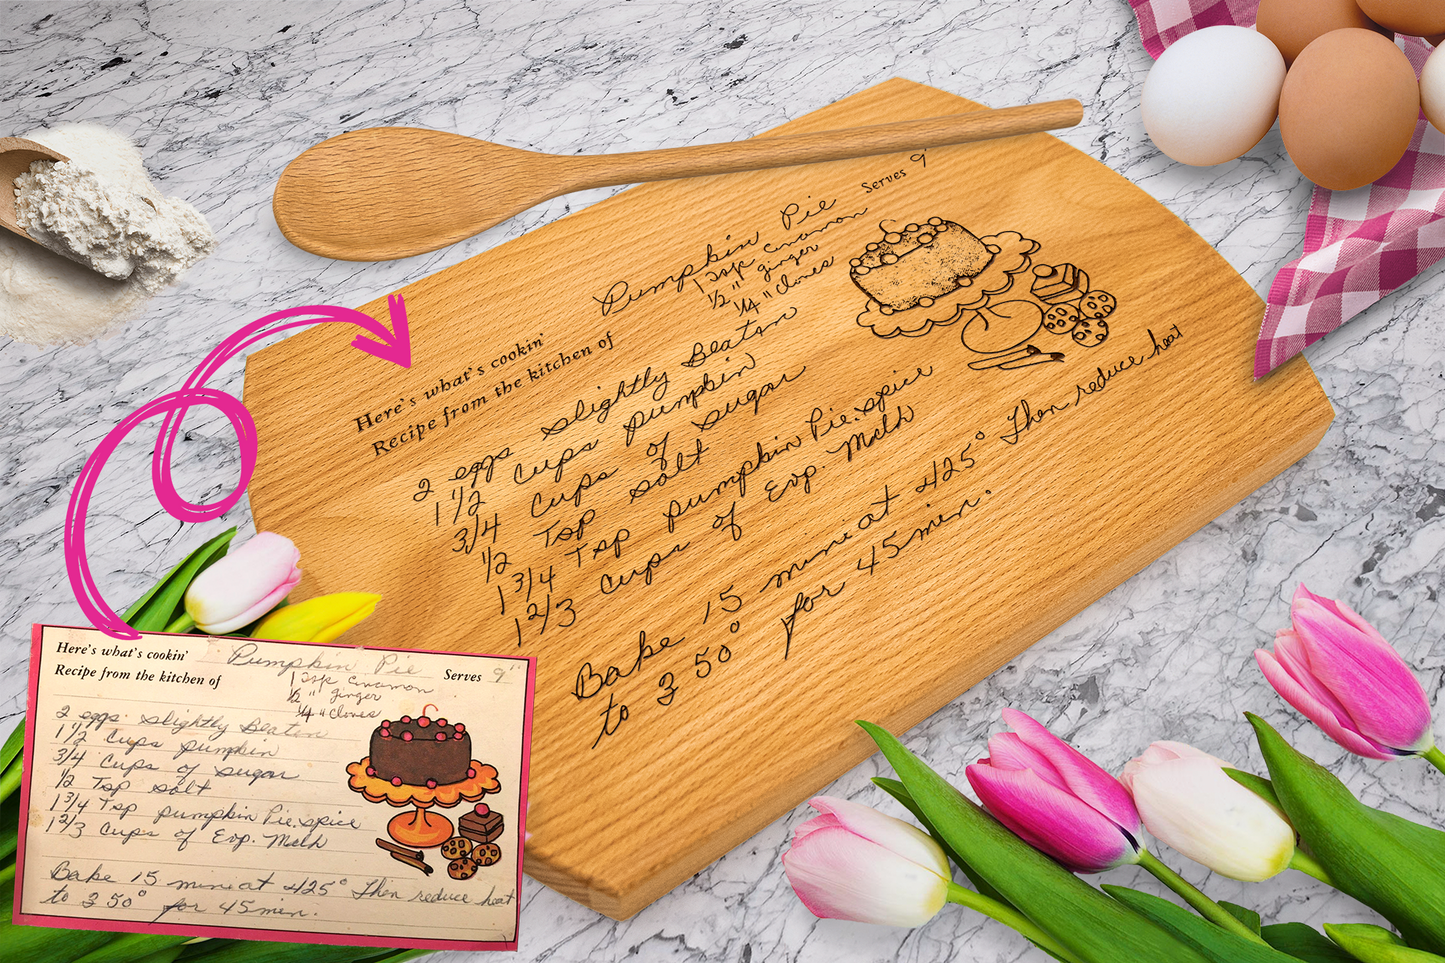 Pumpkin Pie
Serves 9"
1 tsp cinamon
1/2 " ginger
1/4 " cloves
Here's what's cookin'
Recipe from the kitchen of
2 eggs slightly Beaten
1 1/2 cups pumpkin
3/4 cups of sugar
1/2 Tsp salt
1 3/4 Tsp pumpkin Pie.spice
1 2/3 cups of Evp. Melh
Bake 15 min at 425° Then reduce heat
to 350° for 45 min.
Here's what's cookin' Pumpkin Pie Serves 9"
Recipe from the kitchen of
1 tsp cinamon
1/2 " ginger
1/4 " cloves
2 eggs slightly Beaten
1 1/2 cups pumpkin
3/4 cups of sugar
1/2 Tsp salt
1 3/4 Tsp pumpkin Pie.spice
1 2/3 cups of Evp. Melh
Bake 15 min at 425° Then reduce heat
to 350° for 45 min.